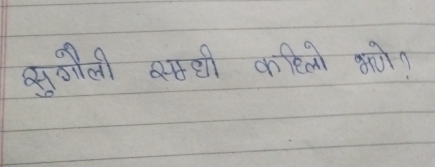 सुगौली सम्धी कहिलो भएो?